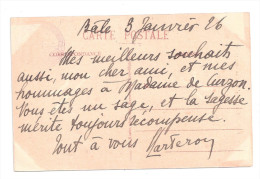 Bale 3 Janvier 26
CARTE POSTALE
Mes meilleurs souhaits
aussi, mon cher ami, et mes
hommages à Madame de Curzon.
Vous êtes un sage, et la sagesse
mérite toujours récompense.
Tout à vous